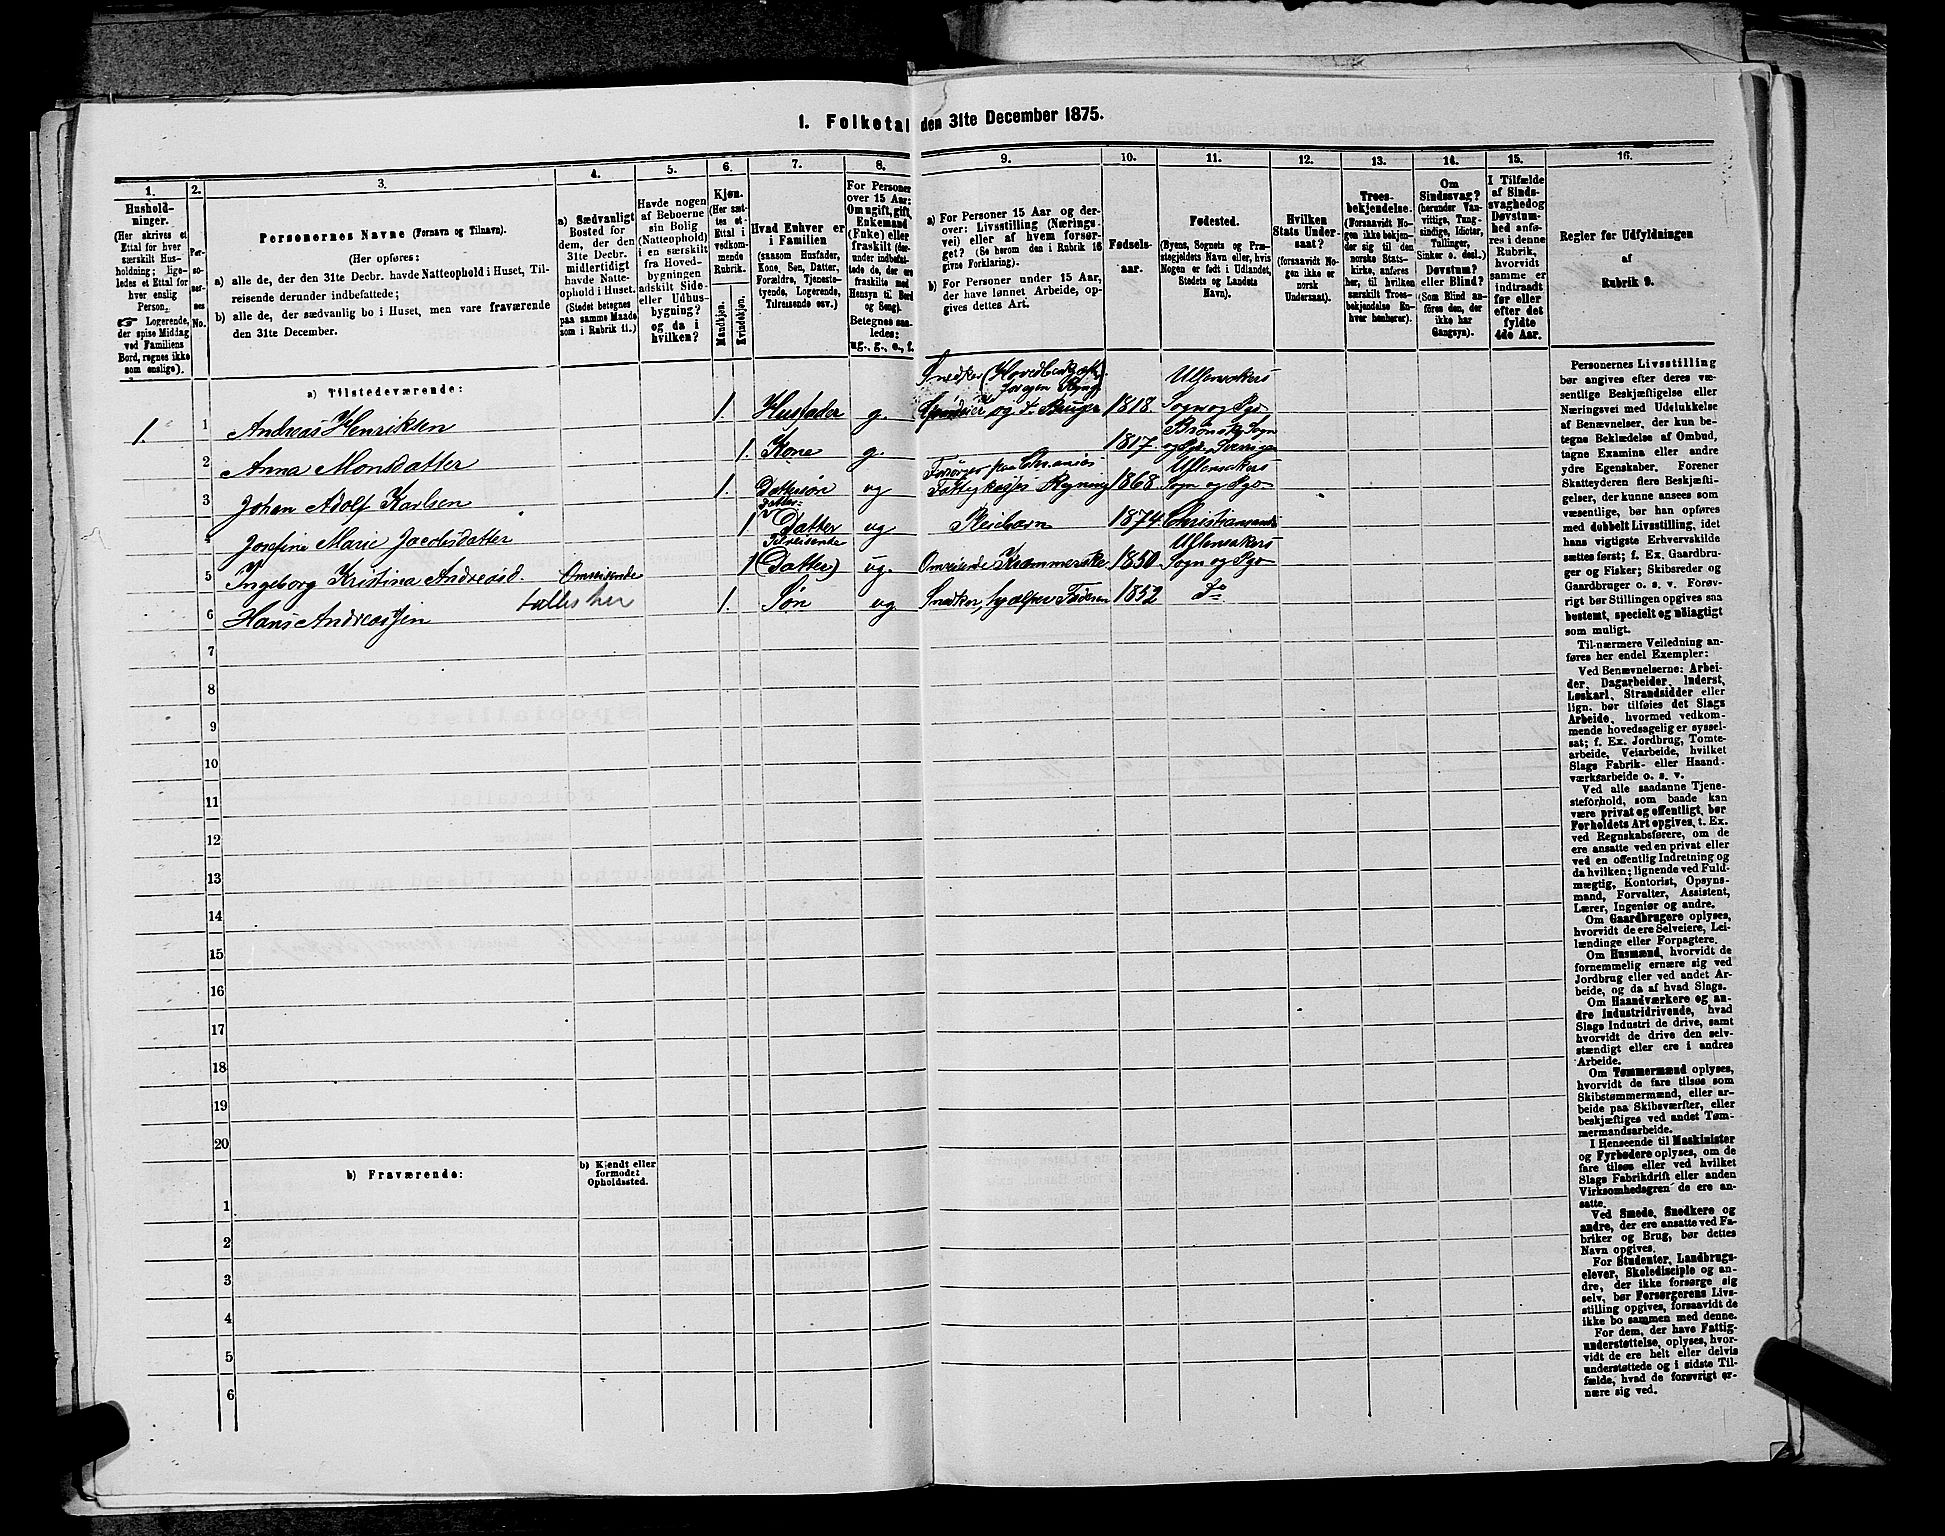 1. Folketal den 31te December 1875.
1.
2.
3.
4.
5.
6.
7.
8.
9.
10.
11.
12.
13.
14.
15.
16.
Hushold-
ninger.
(Her skrives et
Ettal for hver
særskilt Hus-
holdning; lige-
ledes et Ettal for
hver enslig
Person.
☞ Logerende,
der spise Middag
ved Familiens
Bord, regnes ikke
som enslige).
Per-
so-
ner-
nes
No.
Personernes Navne (Fornavn og Tilnavn).
(Her opføres:
a) alle de, der den 31te Decbr. havde Natteophold i Huset, Til-
reisende derunder indbefattede;
b) alle de, der sædvanlig bo i Huset, men vare fraværende
den 31te December.
a) Sædvanligt
Bosted for
dem, der den
31te Decbr.
midlertidigt
havde Natte-
ophold i Huset.
(Stedet betegnes
paa samme Maade
som i Rubrik 11.)
Havde nogen
af Beboerne
sin Bolig
(Natteophold)
i en særskilt
fra Hoved-
bygningen
adskilt Side-
eller Udhus-
bygning?
og da i
hvilken?
Kjøn.
(Her sæt-
tes et
Ettal i
vedkom-
mende
Rubrik.
Mandkjøn.
Kvindekjøn.
Hvad Enhver er
i Familien
(saasom Husfader,
Kone, Søn, Datter,
Forældre, Tjeneste-
tyende, Logerende,
Tilreisende osv.)
For Personer
over 15 Aar:
Om ugift, gift,
Enkemand
(Enke) eller
fraskilt (der-
under indbefat-
tede de, der ere
fraskilte med
Hensyn til Bord
og Seng).
Betegnes saa-
ledes:
ug., g., e., f.
a) For Personer 15 Aar og der-
over: Livsstilling (Nærings-
vei) eller af hvem forsør-
get? (Se herom den i Rubrik 16
givne Forklaring).
b) For Personer under 15 Aar,
der have lønnet Arbeide, op-
gives dettes Art.
Fødsels-
aar.
Fødested.
(Byens, Sognets og Præ-
stegjeldets Navn eller, hvis
Nogen er født i Udlandet,
Stedets og Landets
Navn).
Hvilken
Stats Under-
saat?
(forsaavidt No-
gen ikke er
norsk
Undersaat).
Troes-
bekjendelse.
(Forsaavidt No-
gen ikke bekjen-
der sig til den
norske Stats-
kirke, anføres
her, til hvilken
særskilt Troes-
bekjendelse En-
hver henhører).
Om
Sindssvag?
(herunder Van-
vittige, Tung-
sindige, Idioter,
Tullinger,
Sinker o. desl.)
Døvstum?
eller Blind?
(Som Blind an-
føres den, der
ikke har
Gangsyn).
I Tilfælde
af Sinds-
svaghed og
Døvstum-
hed anfø-
res i denne
Rubrik,
hvorvidt
samme er
indtraadt
før eller
efter det
fyldte
4de Aar.
Regler før Udfyldningen
af
Rubrik 9.
a) Tilstedeværende:
1. 1 Andreas Henriksen 1. Husfader g. Snedker og Bruger 1818. Ullensakers Sogn og Pgd
2 Anna Monsdatter 1. Kone g. 1817.
3 Johan Adolf Karlsen 1. Dattersøn ug Forsørges paa Chranias Fattigkasses Regning 1868 Ullensakers Sogn og Pgd
4 Josefine Marie Jacobsdatter 1 Datter-Datter ug Pleiebarn 1874. Christianssands
5 Ingeborg Kristina Andreasd. Omreisende 1 Tilreisende (Datter) ug. Omreisende Kræmmerske 1850. Ullensakers Sogn og Pgd
6 Hans Andreassen tælles her 1. Søn ug Snedker, hjælper Faderen 1852 Do
7
8
9
10
11
12
13
14
15
16
17
18
19
20
b) Fraværende:
b) Kjendt eller
formodet
Opholdssted.
1
2
3
4
5
6
Personernes Livsstilling
bør angives efter deres væ-
sentlige Beskjæftigelse eller
Næringsvei med Udelukkelse
af Benævnelser, der kun be-
tegne Beklædelse af Ombud,
tagne Examina eller andre
ydre Egenskaber. Forener
Skatteyderen flere Beskjæfti-
gelser, der kunne ansees som
væsentlige, bør han opføres
med dobbelt Livsstilling, idet
hans vigtigste Erhvervskilde
sættes først; f. Ex. Gaardbru-
ger og Fisker; Skibsreder og
Gaardbruger o. s. v. Forøv-
rigt bør Stillingen opgives saa
bestemt, specielt og nøiagtigt
som muligt.
Til nærmere Veiledning an-
føres her endel Exempler:
Ved Benævnelserne: Arbei-
der, Dagarbeider, Inderst,
Løskarl, Strandsidder eller
lign. bør tilføies det Slags
Arbeide, hvormed vedkom-
mende hovedsagelig er syssel-
sat; f. Ex. Jordbrug, Tomte-
arbeide, Veiarbeide, hvilket
Slags Fabrik- eller Haand-
værksarbeide o. s. v.
Ved alle saadanne Tjene-
steforhold, som baade kan
være privat og offentligt, bør
Forholdets Art opgives, t. Ex.
ved Regnskabsførere, om de
ere ansatte ved en privat eller
ved en offentlig Indretning og
da hvilken; lignende ved Fuld-
mægtig, Kontorist, Opsyns-
mand, Forvalter, Assistent,
Lærer, Ingeniør og andre.
Om Gaardbrugere oplyses,
hvorvidt de ere Selveiere, Lei-
lændinge eller Forpagtere.
Om Husmænd, hvorvidt de
fornemmelig ernære sig ved
Jordbrug eller ved andet Ar-
beide, og da af hvad Slags.
Om Haandværkere og an-
dre industridrivende, hvad
Slags Industri de drive, samt
hvorvidt de drive den selv-
stændigt eller ere i andres
Arbeide.
Om Tømmermænd oplyses,
hvorvidt de fare tilsøs som
Skibstømmermænd, eller ar-
beide paa Skibsværfter, eller
beskjæftiges ved andet Tøm-
mermandsarbeide.
I Henseende til Maskinister
og Fyrbødere oplyses, om de
fare tilsøs eller ved hvilket
Slags Fabrikdrift eller anden
Virksomhedsgren de ere an-
satte.
Ved Smede, Snedkere og
andre, der ere ansatte ved Fa-
briker og Brug, bør dettes
Navn opgives.
For Studenter, Landbrugs-
elever, Skoledisciple og an-
dre, der ikke forsørge sig
selv, bør Forsørgerens Livs-
stilling opgives, forsaavidt de
ikke bo sammen med denne.
For dem, der have Fattig-
understøttelse, oplyses, hvor-
vidt de ere helt eller delvis
understøttede og i sidste Til-
fælde, hvad de forøvrigt er-
nære sig ved.